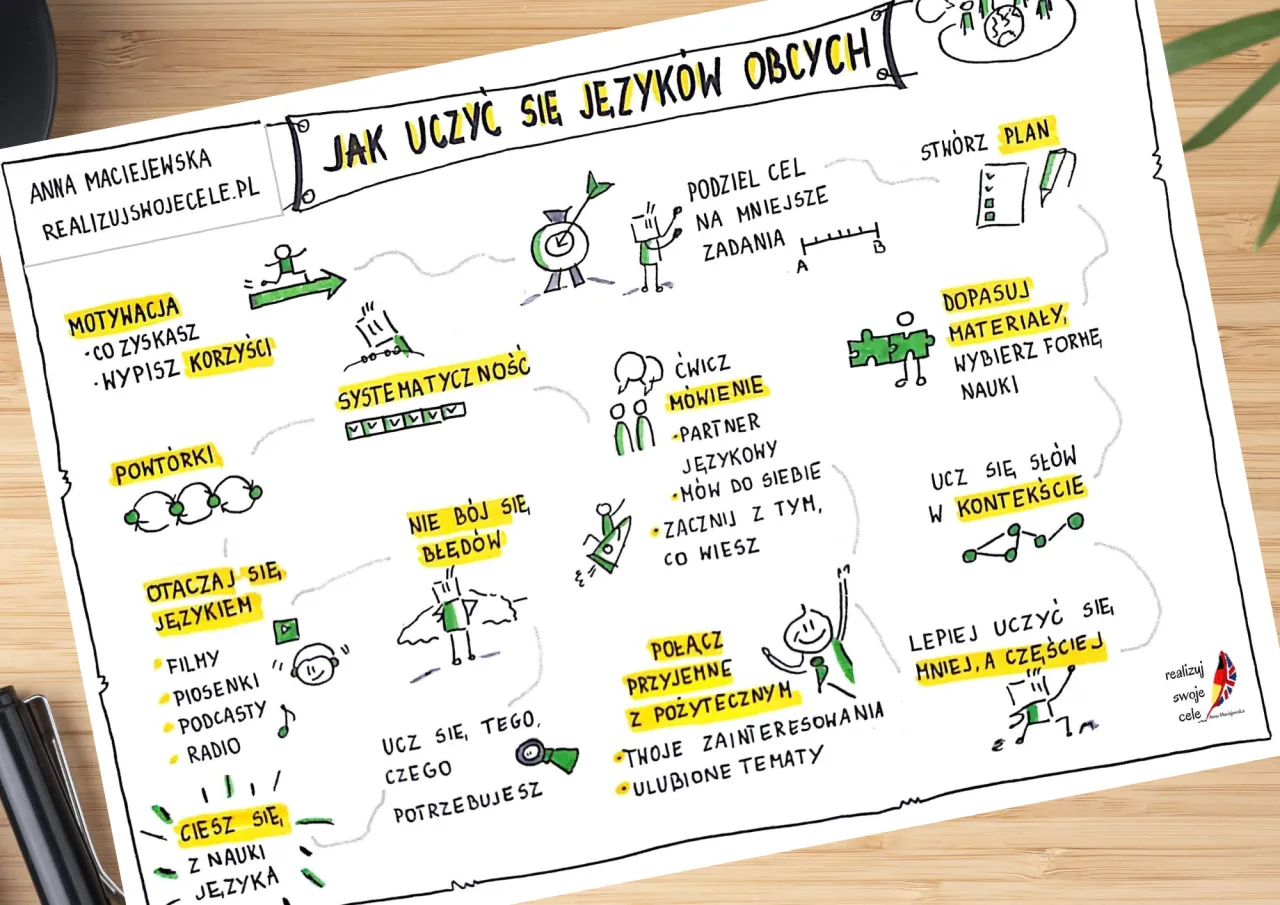 JAK UCZYĆ SIĘ JĘZYKÓW OBCYCH
ANNA MACIEJEWSKA
REALIZUJSWOJECELE.PL
MOTYWACJA
• CO ZYSKASZ
• WYPISZ KORZYŚCI
PODZIEL CEL
NA MNIEJSZE
ZADANIA
A
B
STWÓRZ PLAN
DOPASUJ
MATERIAŁY,
WYBIERZ FORMĘ
NAUKI
UCZ SIĘ SŁÓW
W KONTEKŚCIE
LEPIEJ UCZYĆ SIĘ
MNIEJ, A CZĘŚCIEJ
POŁĄCZ
PRZYJEMNE
Z POŻYTECZNYM
• TWOJE ZAINTERESOWANIA
• ULUBIONE TEMATY
ĆWICZ
MÓWIENIE
• PARTNER
JĘZYKOWY
• MÓW DO SIEBIE
• ZACZNIJ Z TYM,
CO WIESZ
SYSTEMATYCZNOŚĆ
POWTÓRKI
OTACZAJ SIĘ
JĘZYKIEM
• FILMY
• PIOSENKI
• PODCASTY
• RADIO
NIE BÓJ SIĘ
BŁĘDÓW
UCZ SIĘ TEGO,
CZEGO
POTRZEBUJESZ
CIESZ SIĘ
Z NAUKI
JĘZYKA
realizuj
swoje
cele
Anna Maciejewska